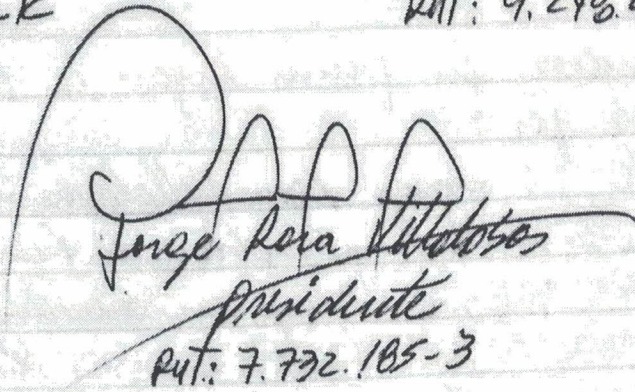 RUT: 9.248.
Jorge Rosa Villalobos
Presidente
RUT: 7.732.185-3